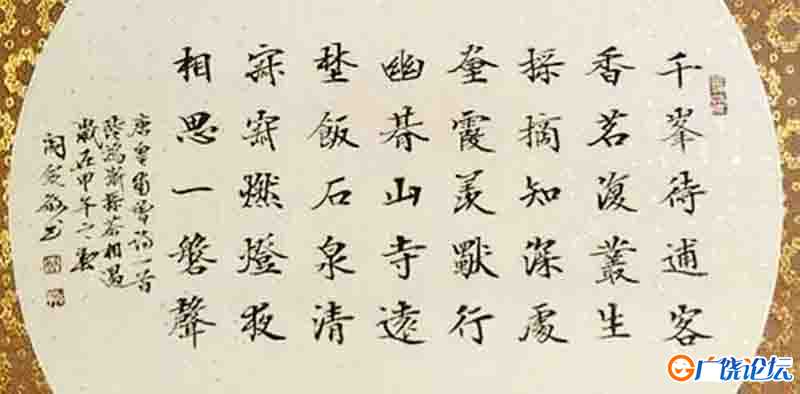 千峯待逋客
香茗復叢生
採摘知深處
煙霞羨獨行
幽朞山寺遠
埜飯石泉清
寂寂燃燈夜
相思一磬聲
唐皇甫曾詩一首
陸鴻漸採茶相遇
歲在甲午之夏
书
广饶论坛